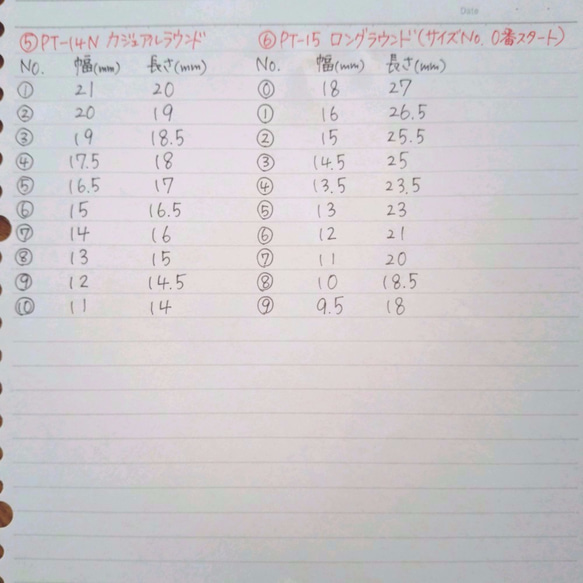 Date
⑤PT-14N カジュアルラウンド ⑥PT-15 ロングラウンド(サイズNo.0番スタート)
No. 幅(mm) 長さ(mm) No. 幅(mm) 長さ(mm)
① 21 20 ⓪ 18 27
② 20 19 ① 16 26.5
③ 19 18.5 ② 15 25.5
④ 17.5 18 ③ 14.5 25
⑤ 16.5 17 ④ 13.5 23.5
⑥ 15 16.5 ⑤ 13 23
⑦ 14 16 ⑥ 12 21
⑧ 13 15 ⑦ 11 20
⑨ 12 14.5 ⑧ 10 18.5
⑩ 11 14 ⑨ 9.5 18